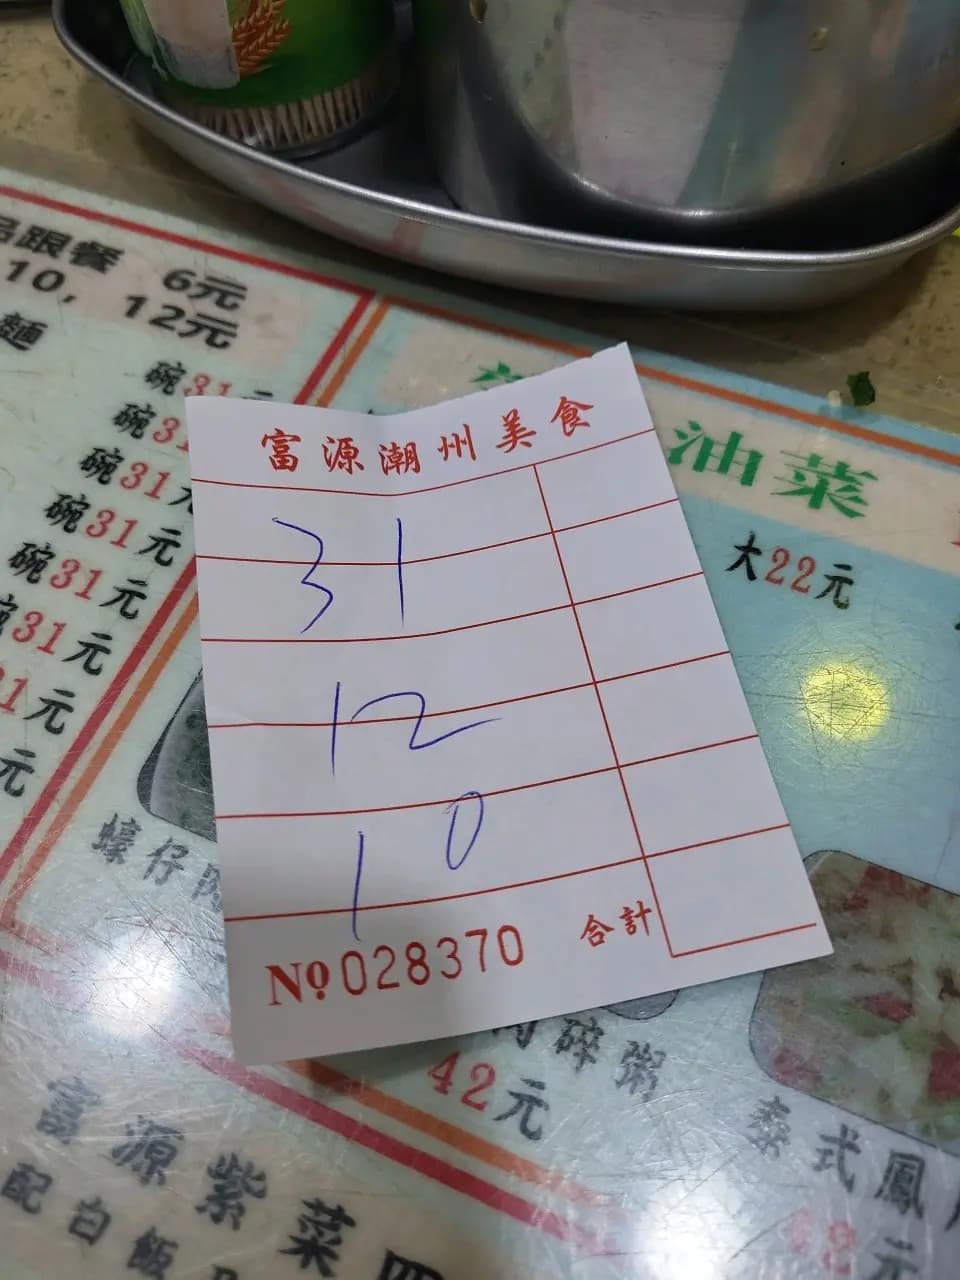 跟餐 6元
10, 12元
麵
碗31元
碗31
碗31元
碗31元
碗31元
31元
元
元
油菜
大22元
富源潮州美食
31
12
10
合計
Nº028370
蠔仔
碎粥
42元
泰式鳳
42元
富源紫菜四
配白飯